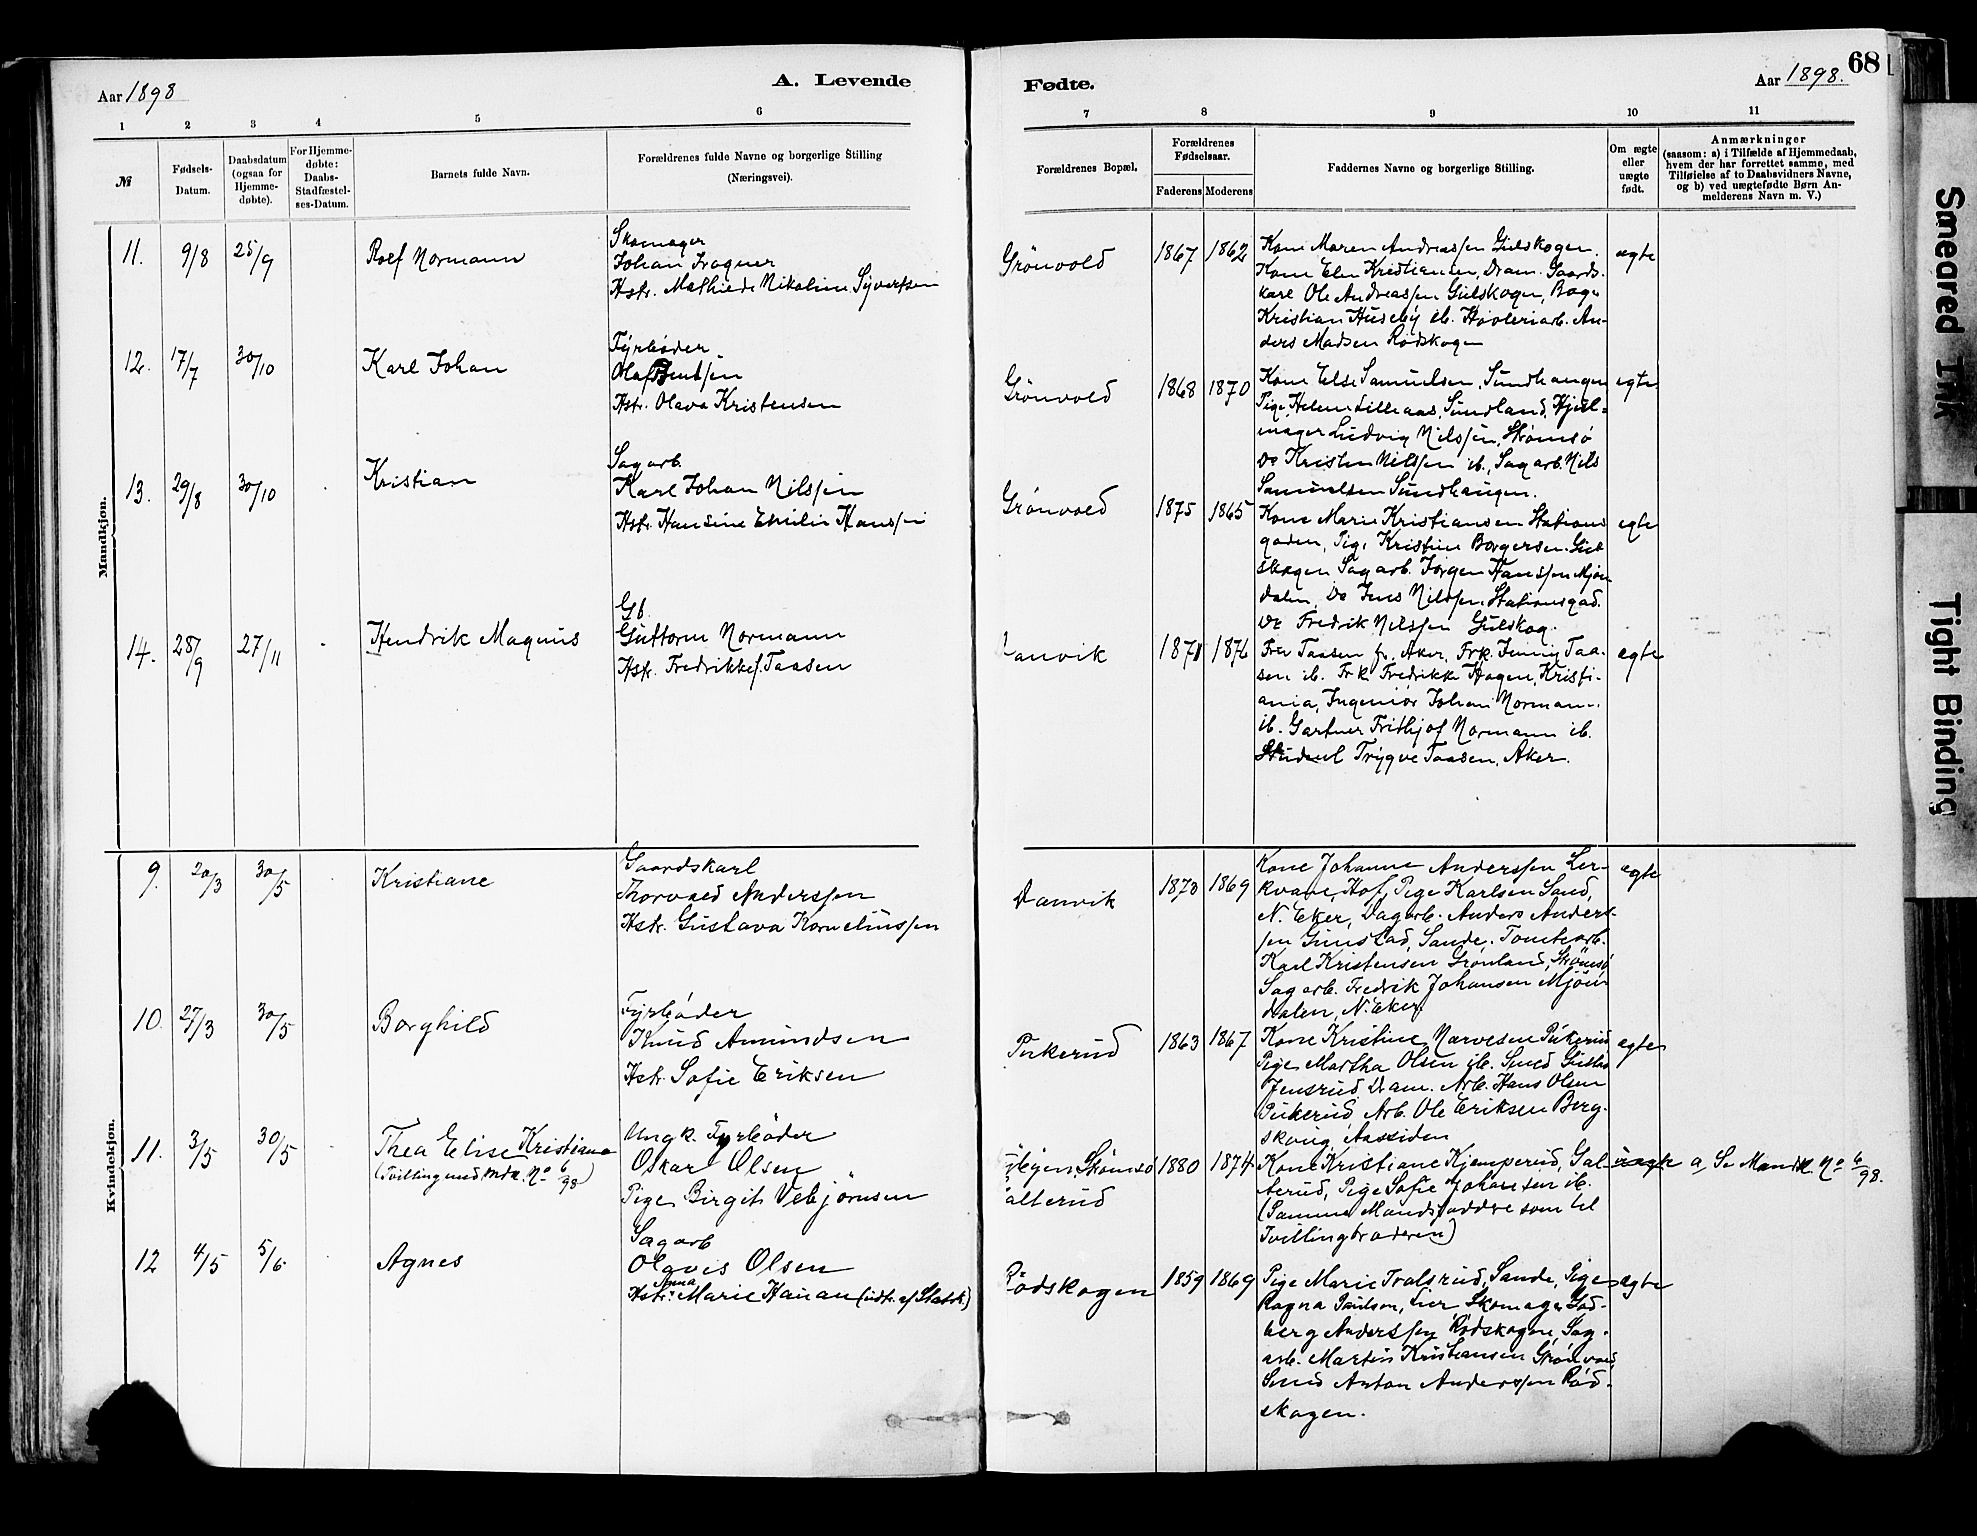 68
Aar 1898
A. Levende
Fødte.
Aar 1898.
1 2 3 4 5 6 7 8 9 10 11
№
Fødsels-Datum.
Daabsdatum (ogsaa for Hjemme-døbte).
For Hjemme-døbte: Daabs-Stadfæstel-ses-Datum.
Barnets fulde Navn.
Forældrenes fulde Navne og borgerlige Stilling
(Næringsvei).
Forældrenes Bopæl.
Forældrenes Fødselsaar.
Faderens Moderens
Faddernes Navne og borgerlige Stilling.
Om ægte eller uægte født.
Anmærkninger
(saasom: a) i Tilfælde af Hjemmedaab,
hvem der har forrettet samme, med
Tilføielse af to Daabsvidners Navne,
og b) ved uægtefødte Børn An-
melderens Navn m. V.)
Mandkjøn.
11. 9/8 25/9 Rolf Normann
Skomager
Johan Fragner
Hstr. Mathilde Nikoline Syvertsen
Grønvold 1867 1862
Kone Maren Andreassen Gulskogen.
Kone Elen Kristiansen, Dram. Gaards-
karl Ole Andreassen Gulskogen, Bager
Kristian Huseby ib. Høvleriarb. An-
ders Madsen Rødskogen
ægte
12. 17/7 30/10 Karl Johan
Fyrbøder
Olaf
Hstr. Olava Kristensen
Grønvold 1868 1870
Kone Else Samuelsen, Sundhaugen
Pige Helene Lilleaas, Sundland, Hjul-
mager Ludvig Nilssen, Strømsø
Do Kristen Nilssen ib., Sagarb. Nils
Samuelsen Sundhaugen.
ægte
13. 29/8 30/10 Kristian
Sagarb.
Karl Johan Nilssen
Hstr. Hansine Emilie Hanssen
Grønvold 1875 1865
Kone Marie Kristiansen Stations
gaden, Pige Kristine Borgersen Gul
skogen Sagarb. Jørgen Hanssen Mjøn
dalen, Do Jens Nilssen Stationsgad.
Do Fredrik Nilssen Gulskog.
ægte
14. 28/9 27/11 Hendrik Magnus
Gb.
Guttorm Normann
Hstr. Fredrikke f. Taasen
Danvik 1871 1876
Fru Taasen Aker, Frk. Jenny Taa-
sen ib. Frk Fredrikke Hagen, Kristi-
ania, Ingeniør Johan Normann
ib. Gartner Frithjof Normann ib.
Student Trygve Taasen, Aker.
ægte
Kvindekjøn.
9. 20/3 30/5 Kristiane
Gaardskarl
Thorvald Anderssen
Hstr. Gustava Korneliussen
Danvik 1870 1869
Kone Johanne Anderssen Ler-
kvare, Hof, Pige Karlsen Sand,
N. Eker, Dagarb. Anders Anders-
sen Gunstad, Sande, Tomtearb.
Karl Kristensen Grønland, Strømsø
Sagarb. Fredrik Johansen Mjøn
dalen, N. Eker.
ægte
10. 27/3 30/5 Borghild
Fyrbøder
Knud Amundsen
Hstr. Sofie Eriksen
Pukerud 1863 1867
Kone Kristine Narvesen Pukerud
Pige Martha Olsen ib. Smed Gustav
Jensrud, Dram. Arb. Hans Olsen
Pukerud, Arb. Ole Eriksen Berg-
skoug, Aassiden
ægte
11. 3/5 30/5 Thea Elise Kristiane
(Tvilling med Mdk. No 6/98)
Ungk. Fyrbøder
Oskar Olsen
Pige Birgit Vebjørnsen
Strømsø
Galterud
1880 1874
Kone Kristiane Kjemperud, Gal-
terud, Pige Sofie Johansen ib.
(Samme Mandsfaddre som til
Tvillingbroderen)
uægte
a, Se Mandk. No 6/98.
12 4/5 5/6 Agnes
Sagarb
Olavis Olsen
Hstr. Anna Marie Hauan (udtr. af Statsk.)
Rødskogen 1859 1869
Pige Marie Tralsrud, Sande, Pige
Ragna Paulsen, Lier Skomager Gud-
berg Anderssen Rødskogen, Sag-
arb. Martin Kristiansen Grønvold,
Smed Anton Anderssen Rød-
skogen.
ægte
Smeared Ink
Tight Binding